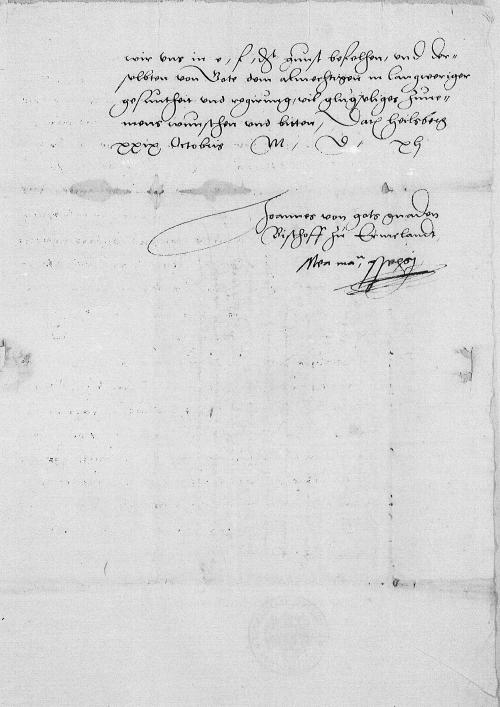 wir uns in e, f, dt gunst befelhen, und der-
selbten von Gote dem almechtigen in langweriger
gesuntheit und regirung, vil gluegseliges zune-
mens wunschen und bitten, Dat Heilsberg
xxix Octobris M, D, xli
Joannes von gots gnaden
Bischoff zu Ermelandt
Mea man